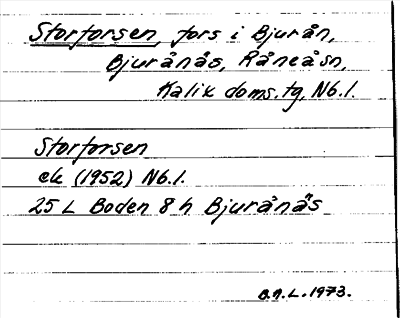 Storforsen, fors i Bjurån,
Bjurånäs, Råneå sn,
Kalix doms.tg, Nb.l.
Storforsen
ek (1952) Nb.l.
25 L Boden 8 h Bjurånäs
B.A.L. 1973.